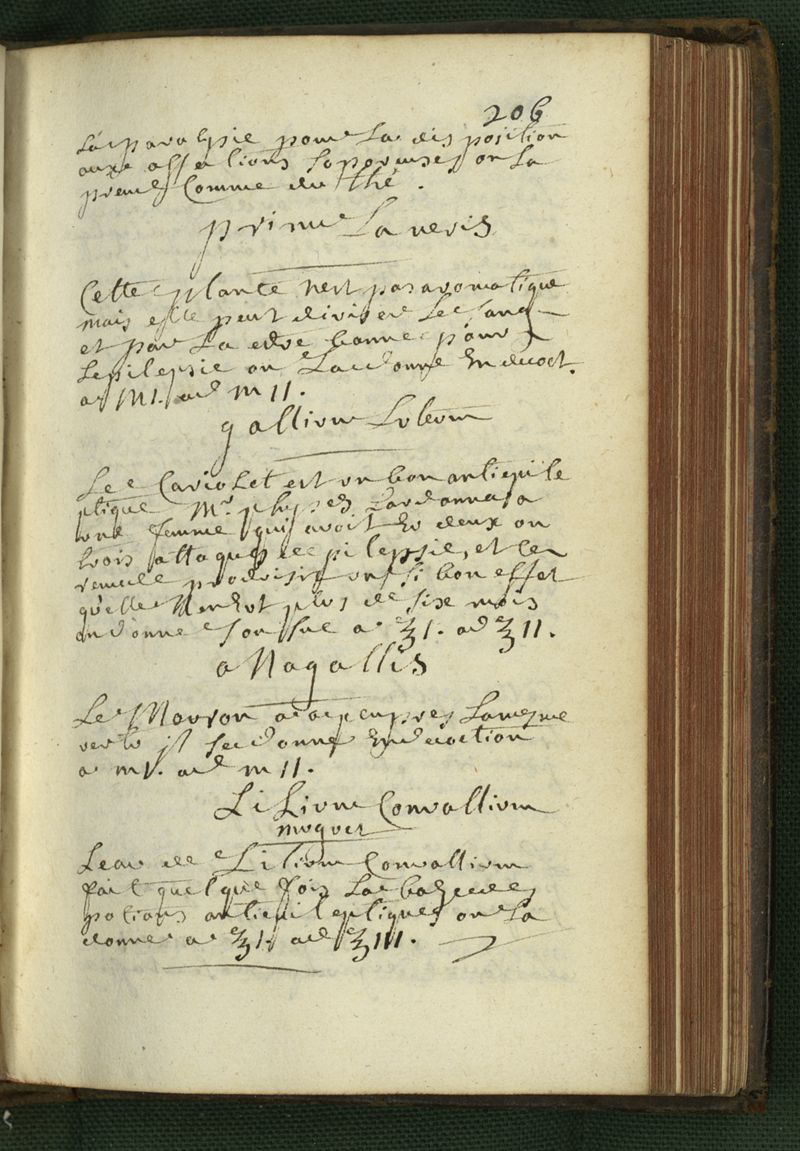 206
La paralysie pour La disposition
aux affections soporeuses on La
prend Comme du thé.
primula veris
Cette plante nest pas aromatique
mais elle peut diviser Le sang
et par La estre bonne pour
Lepilepsie on La donne En decoct.
a M I. ad m II.
gallium Luteum
Le Cariolet est un bon antiepile
ptique Mr. Lordonna a
une femme qui avoit Eu deux ou
trois attaques depilepsie, et ce
remede produisit un si bon effet
qu'elle Nen Eut plus de six mois
on donne son suc a ʒ I. ad ʒ II.
aNagallis
Le Mouron a a peu pres La mesme
vertu il se donne En decoction
a m I. ad m II.
LiLium Convallium
muguet
Leau de Lilium Convallium
fait quelque fois La baze des
potions antiepileptiques on La
donne a ℥ I. ad ℥ III.